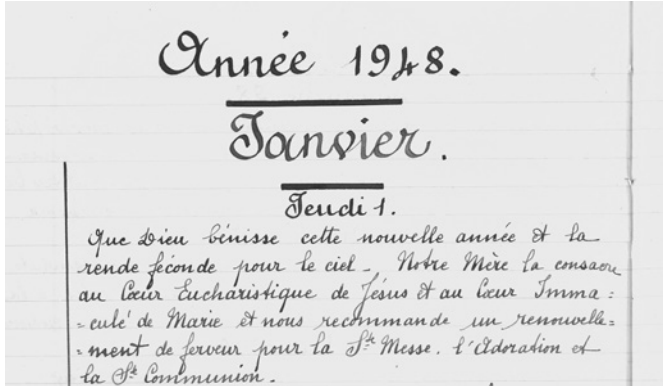 Année 1948.
Janvier.
Jeudi 1.
Que Dieu bénisse cette nouvelle année et la
rende féconde pour le ciel _ Notre Mère la consacre
au Cœur Eucharistique de Jésus et au Cœur Imma=
=culé de Marie et nous recommande un renouvelle=
=ment de ferveur pour la Ste Messe. l'Adoration et
la Ste Communion.